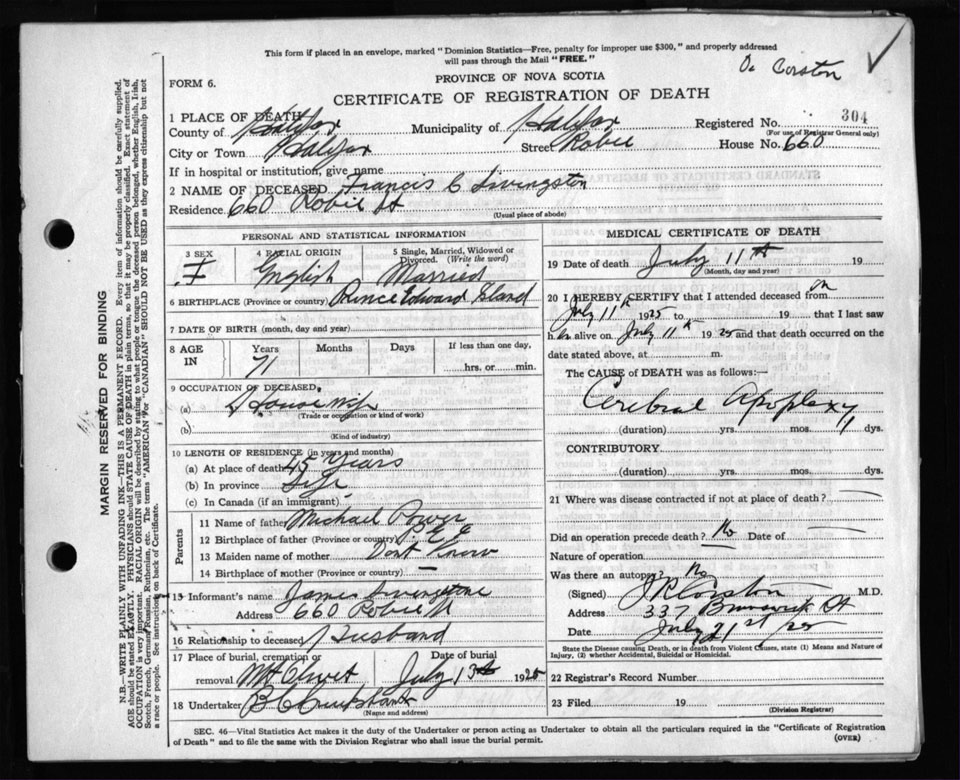 This form if placed in an envelope, marked "Dominion Statistics—Free, penalty for improper use $300," and properly addressed
will pass through the Mail "FREE."
Dr Corston
✓
FORM 6.
PROVINCE OF NOVA SCOTIA
CERTIFICATE OF REGISTRATION OF DEATH
1 PLACE OF DEATH
County of Halifax Municipality of Halifax Registered No. 304
(For use of Registrar General only)
City or Town Halifax Street Robie House No. 660
If in hospital or institution, give name
2 NAME OF DECEASED Francis C Livingston
Residence 660 Robie St
(Usual place of abode)
PERSONAL AND STATISTICAL INFORMATION
3 SEX 4 RACIAL ORIGIN 5 Single, Married, Widowed or Divorced. (Write the word)
F English Married
6 BIRTHPLACE (Province or country) Prince Edward Island
7 DATE OF BIRTH (month, day and year)
8 AGE IN Years Months Days If less than one day,
71 hrs. or min.
9 OCCUPATION OF DECEASED,
(a) Housewife
(Trade or occupation or kind of work)
(b)
(Kind of industry)
10 LENGTH OF RESIDENCE (in years and months)
(a) At place of death 45 Years
(b) In province
(c) In Canada (if an immigrant)
Parents
11 Name of father Michael Power
12 Birthplace of father (Province or country) P. E. I
13 Maiden name of mother Dont Know
14 Birthplace of mother (Province or country) —
15 Informant's name James Livingstone
Address 660 Robie St
16 Relationship to deceased Husband
17 Place of burial, cremation or removal Date of burial
Mt Olivet July 13th 1925
18 Undertaker
(Name and address)
MEDICAL CERTIFICATE OF DEATH
19 Date of death July 11th 19
(Month, day and year)
20 I HEREBY CERTIFY that I attended deceased from on
July 11th 1925 to 19 that I last saw
her alive on July 11th 1925 and that death occurred on the
date stated above, at m.
The CAUSE of DEATH was as follows:—
Cerebral Apoplexy
(duration) yrs. mos. dys.
CONTRIBUTORY
(duration) yrs. mos. dys.
21 Where was disease contracted if not at place of death?
Did an operation precede death? No Date of
Nature of operation
Was there an autopsy? No
(Signed) Corston M.D.
Address 337 Brunswick St
Date July 21st 25
State the Disease causing Death, or in death from Violent Causes, state (1) Means and Nature of
Injury, (2) whether Accidental, Suicidal or Homicidal.
22 Registrar's Record Number
23 Filed 19
(Division Registrar)
SEC. 46—Vital Statistics Act makes it the duty of the Undertaker or person acting as Undertaker to obtain all the particulars required in the "Certificate of Registration
of Death" and to file the same with the Division Registrar who shall issue the burial permit.
(OVER)
MARGIN RESERVED FOR BINDING
N.B.—WRITE PLAINLY WITH UNFADING INK—THIS IS A PERMANENT RECORD. Every item of information should be carefully supplied.
AGE should be stated EXACTLY. PHYSICIANS should STATE CAUSE OF DEATH in plain terms, so that it may be properly classified. Exact statement of
OCCUPATION is very important. RACIAL ORIGIN will be described by stating to what people or tongue the deceased person belonged, whether English, Irish,
Scotch, French, German, Russian, Ruthenian, etc. The terms "AMERICAN" or "CANADIAN" SHOULD NOT BE USED as they express citizenship but not
a race or people. See instructions on back of Certificate.